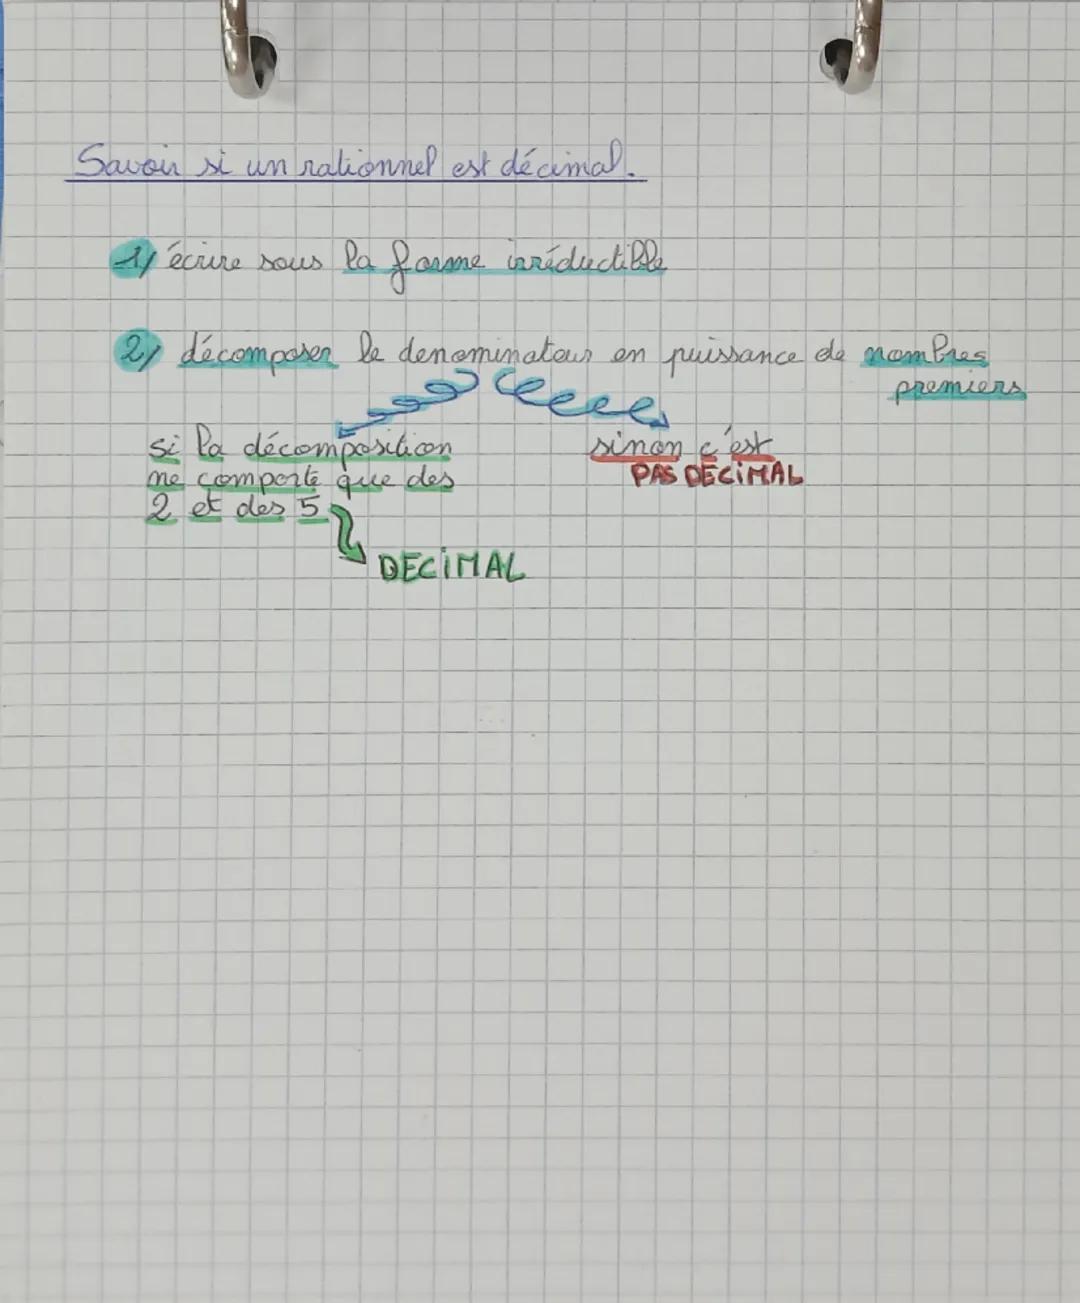 Savoir si un rationnel est décimal.
1/ écrire sous la forme irréductible
2/ décomposer le denominateur en puissance de nombres
premiers
si la décomposition
ne comporte que des
2 et des 5
DECIMAL
sinon c'est
PAS DECIMAL